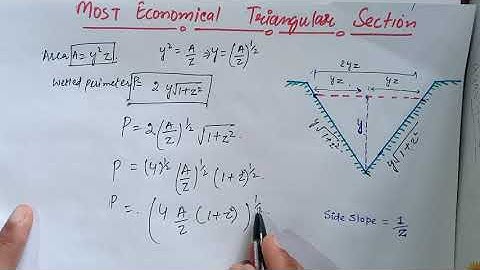 Most Economical Triangular Section
Area A = y²z
y² = A/z ⇒ y = (A/z)^1/2
Wetted perimeter P = 2y√1+z²
P = 2(A/z)^1/2 √1+z²
P = (4)^1/2 (A/z)^1/2 (1+z²)^1/2
P = (4 A/z (1+z²))^1/2
2yz
yz yz
y
y√1+z² y√1+z²
Side Slope = 1/z